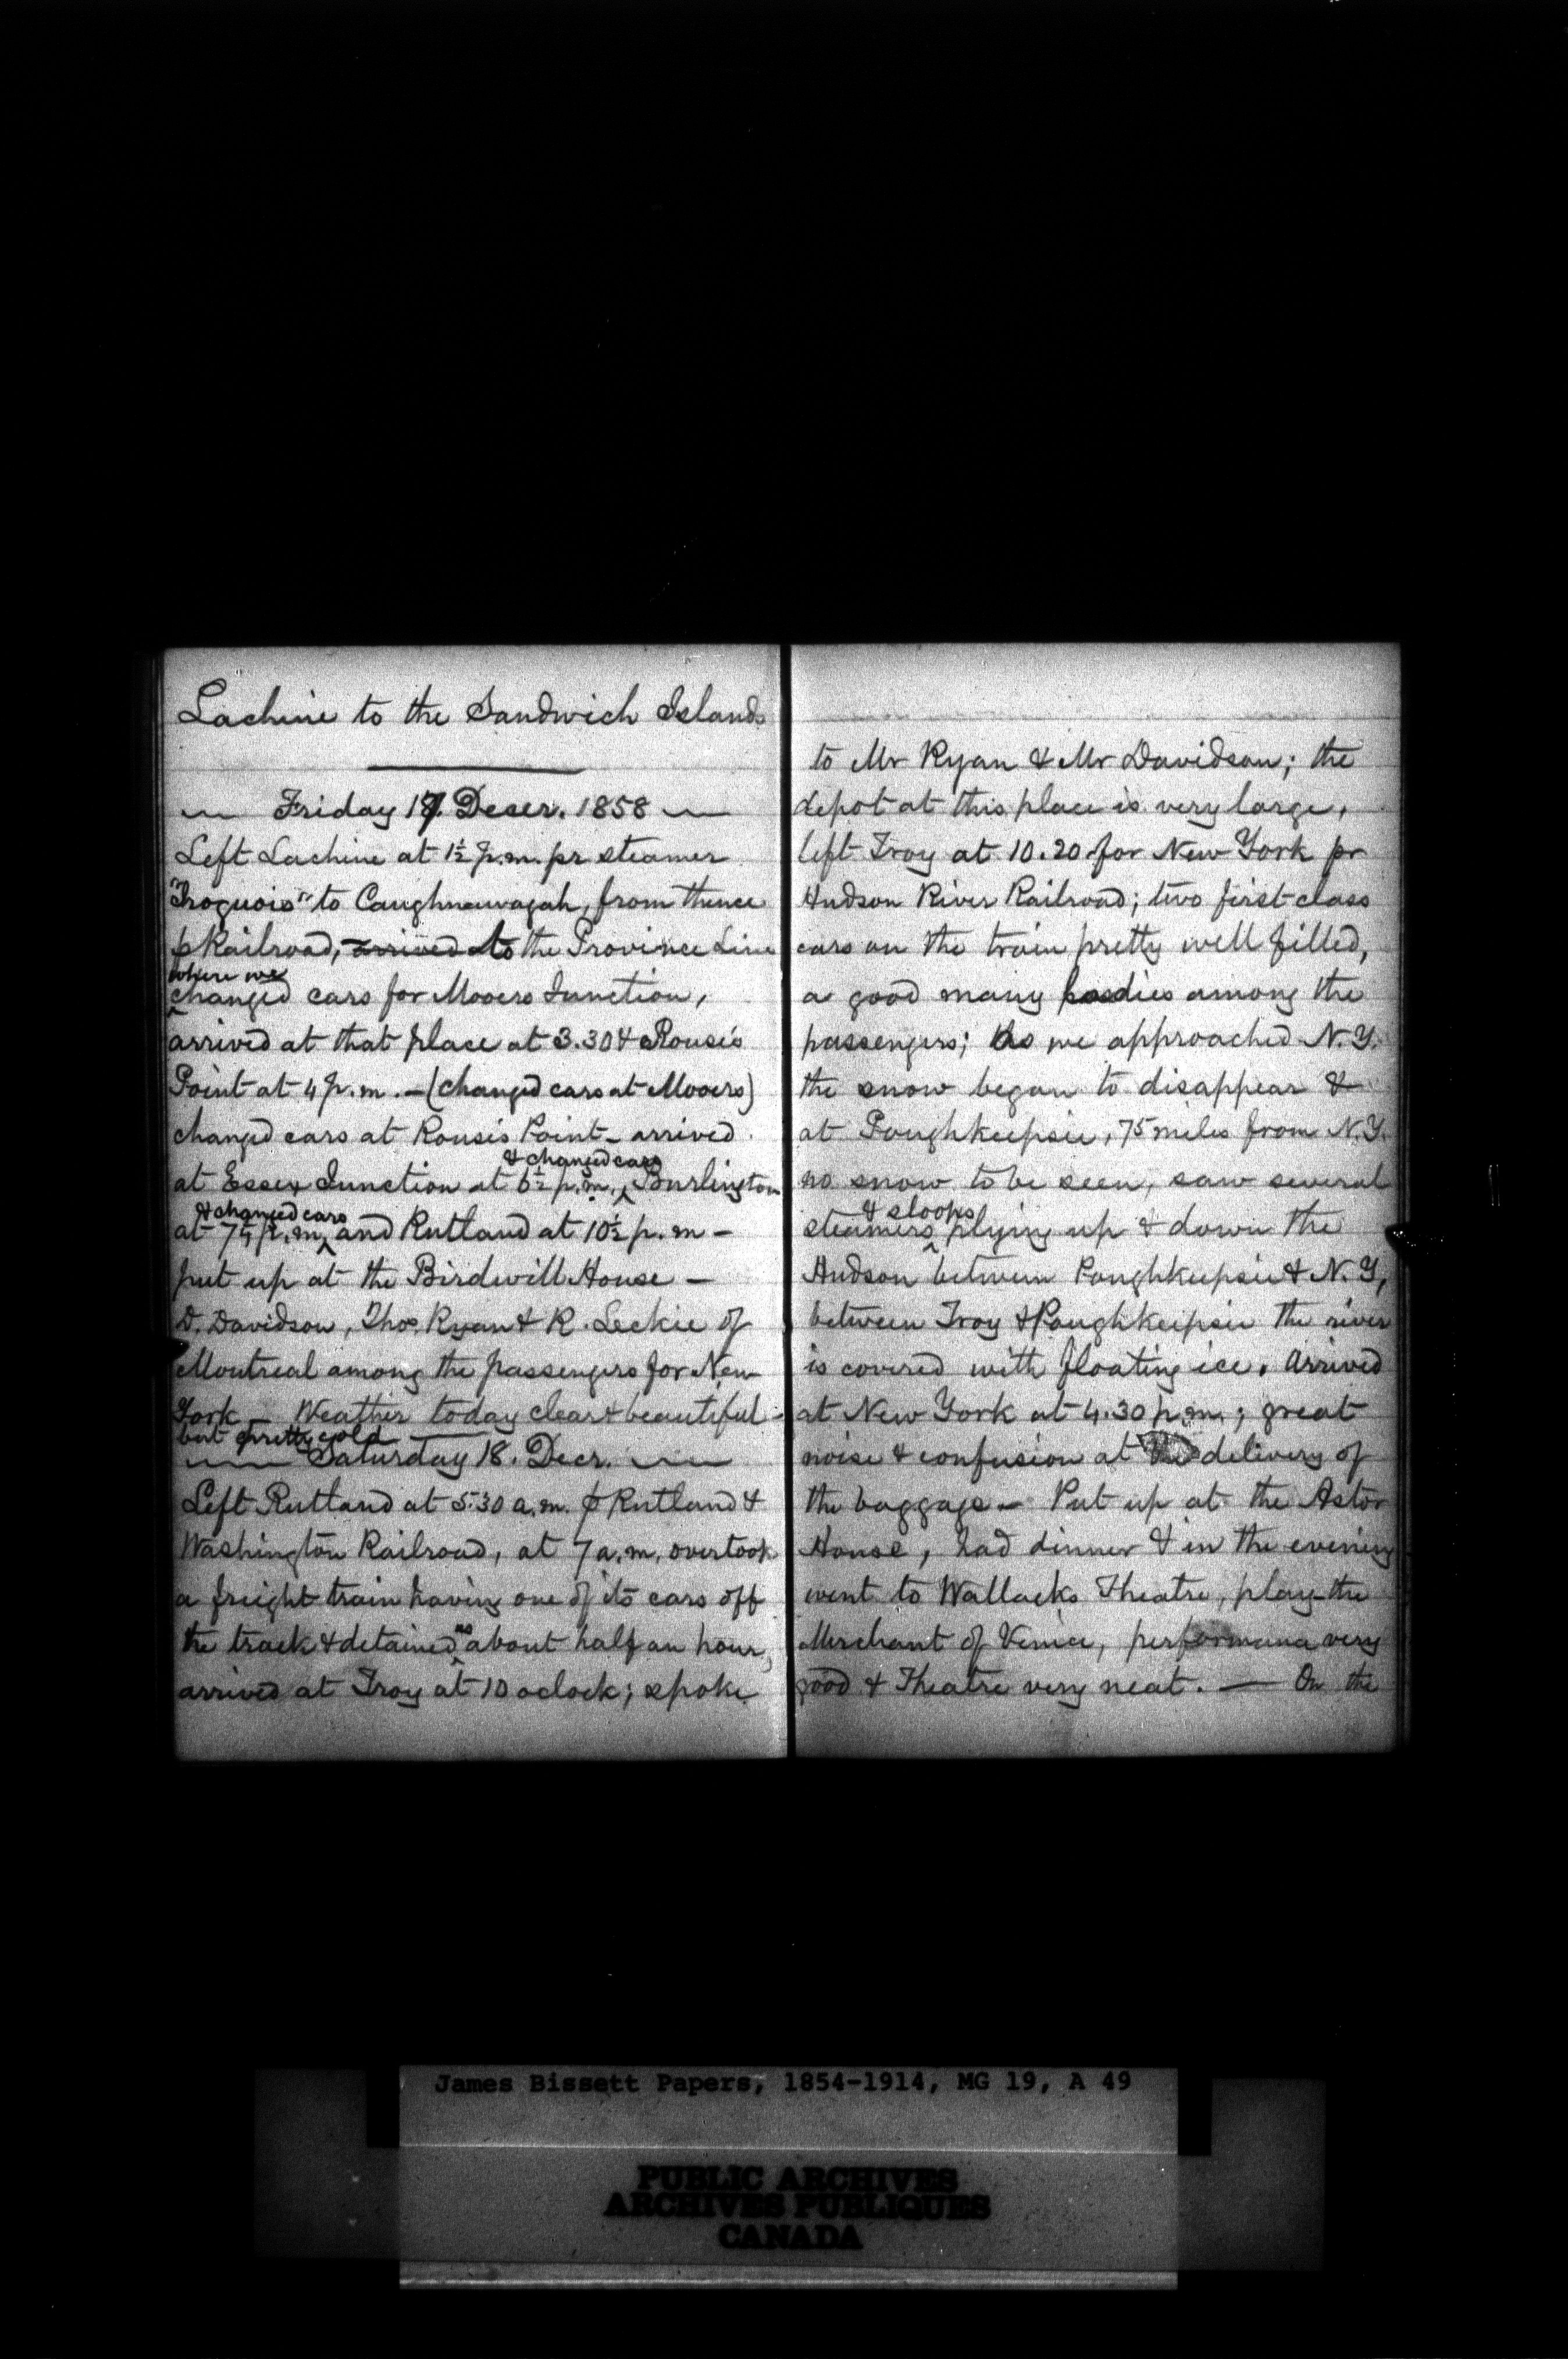 Lachine to the Sandwich Islands
Friday 17. Decer. 1858
Left Lachine at 1½ p.m. pr steamer
"Iroquois" to Caughnawagah, from thence
p Railroad, arrived to the Province Line
where we
changed cars for Mooers Junction,
arrived at that place at 3.30 & Rouse's
Point at 4 p.m. - (changed cars at Mooers)
changed cars at Rouse's Point - arrived
& changed cars
at Essex Junction at 6½ p.m., Burlington
& changed cars
at 7¼ p.m. and Rutland at 10½ p.m -
put up at the Birdwill House -
D. Davidson, Thos. Ryan & R. Leckie of
Montreal among the passengers for New
York - Weather today clear & beautiful -
but pretty cold
Saturday 18. Decr.
Left Rutland at 5.30 a.m. p Rutland &
Washington Railroad, at 7 a.m. overtook
a freight train having one of its cars off
the track & detained us about half an hour,
arrived at Troy at 10 oclock; spoke
to Mr Ryan & Mr Davidson; the
depot at this place is very large,
left Troy at 10.20 for New York pr
Hudson River Railroad; two first-class
cars on the train pretty well filled,
a good many ladies among the
passengers; As we approached N.Y.
the snow began to disappear &
at Poughkeepsie, 75 miles from N.Y.
no snow to be seen, saw several
& sloops
steamers plying up & down the
Hudson between Poughkeepsie & N.Y,
between Troy & Poughkeepsie the river
is covered with floating ice. Arrived
at New York at 4.30 p.m.; great
noise & confusion at the delivery of
the baggage - Put up at the Astor
House, had dinner & in the evening
went to Wallacks Theatre, play-the
Merchant of Venice, performance very
good & Theatre very neat. — On the
James Bissett Papers, 1854-1914, MG 19, A 49
PUBLIC ARCHIVES
ARCHIVES PUBLIQUES
CANADA